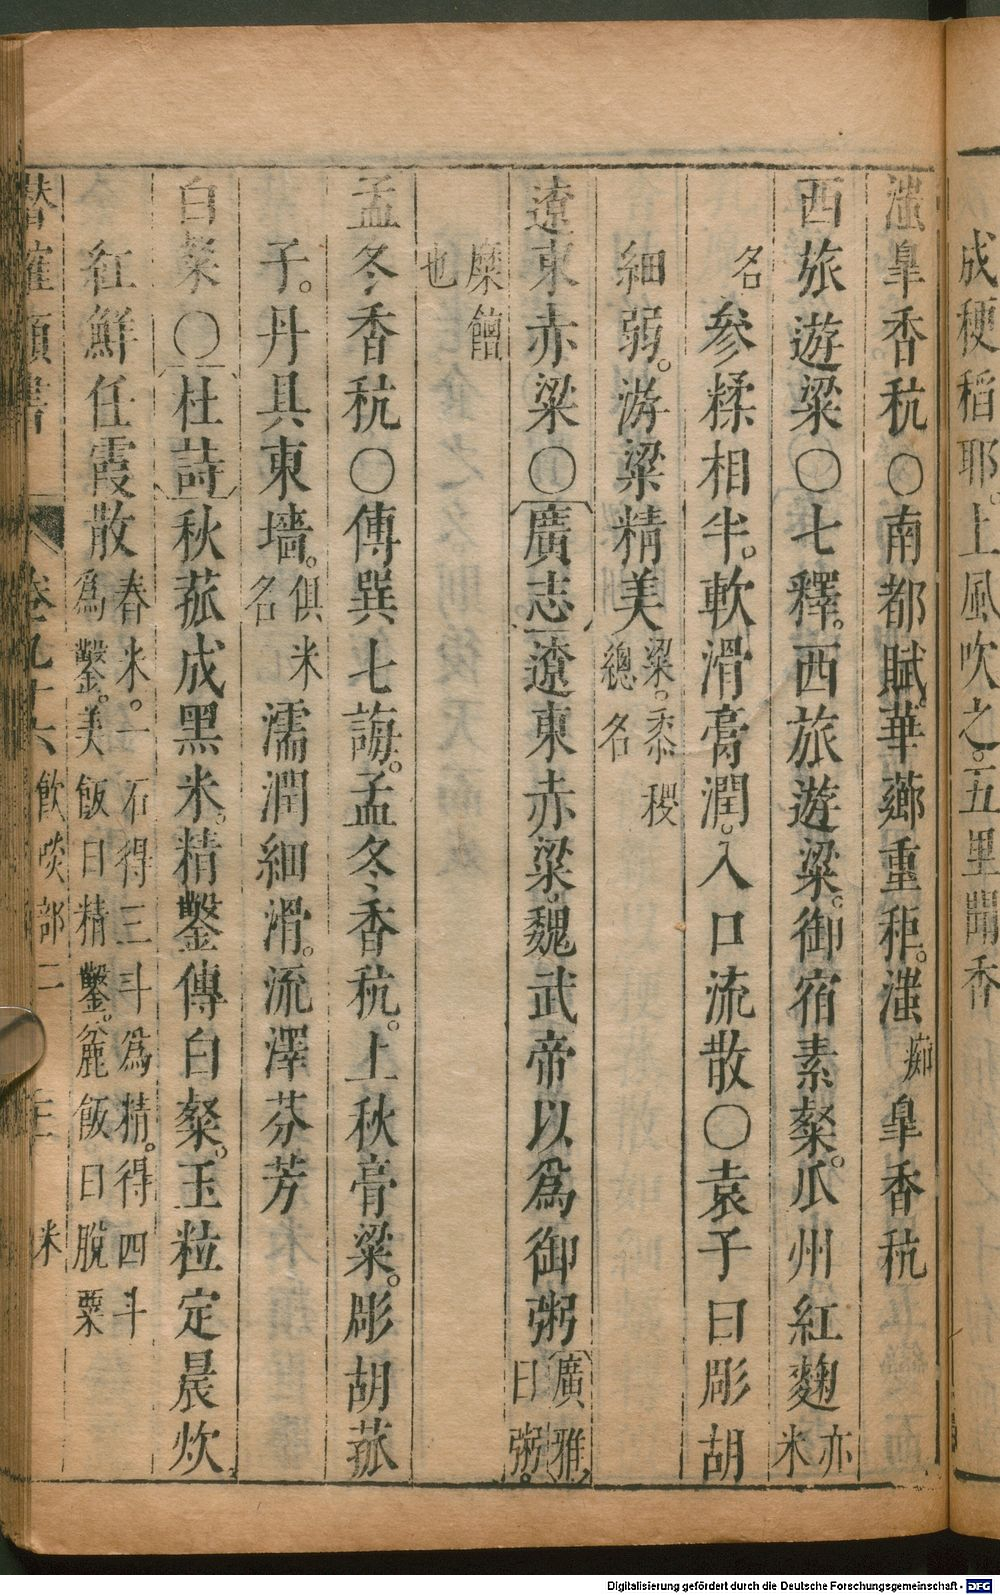 成稉稻耶。上風吹之。五里聞香
滍皐香秔〇南都賦。華薌重秬。滍痴皐香秔
西旅遊粱〇七釋。西旅遊粱。御宿素粲。瓜州紅麴亦米
名參糅相半。軟滑膏潤。入口流散〇袁子曰彫胡
細弱。游粱精美粱。黍稷總名
遼東赤粱〇廣志遼東赤粱。魏武帝以爲御粥廣雅曰粥。
糜饘也
孟冬香秔〇傅巽七誨。孟冬香秔。上秋膏粱。彫胡菰
子。丹具東墻。俱米名濡潤細滑。流澤芬芳
白粲〇杜詩秋菰成黑米。精鑿傳白粲。玉粒定晨炊
紅鮮任霞散舂米。一石得三斗爲精。得四斗爲鑿。美飯曰精鑿。麄飯曰脫粟
類書 卷九十六 飲啖部二 三 米
Digitalisierung gefördert durch die Deutsche Forschungsgemeinschaft - DFG